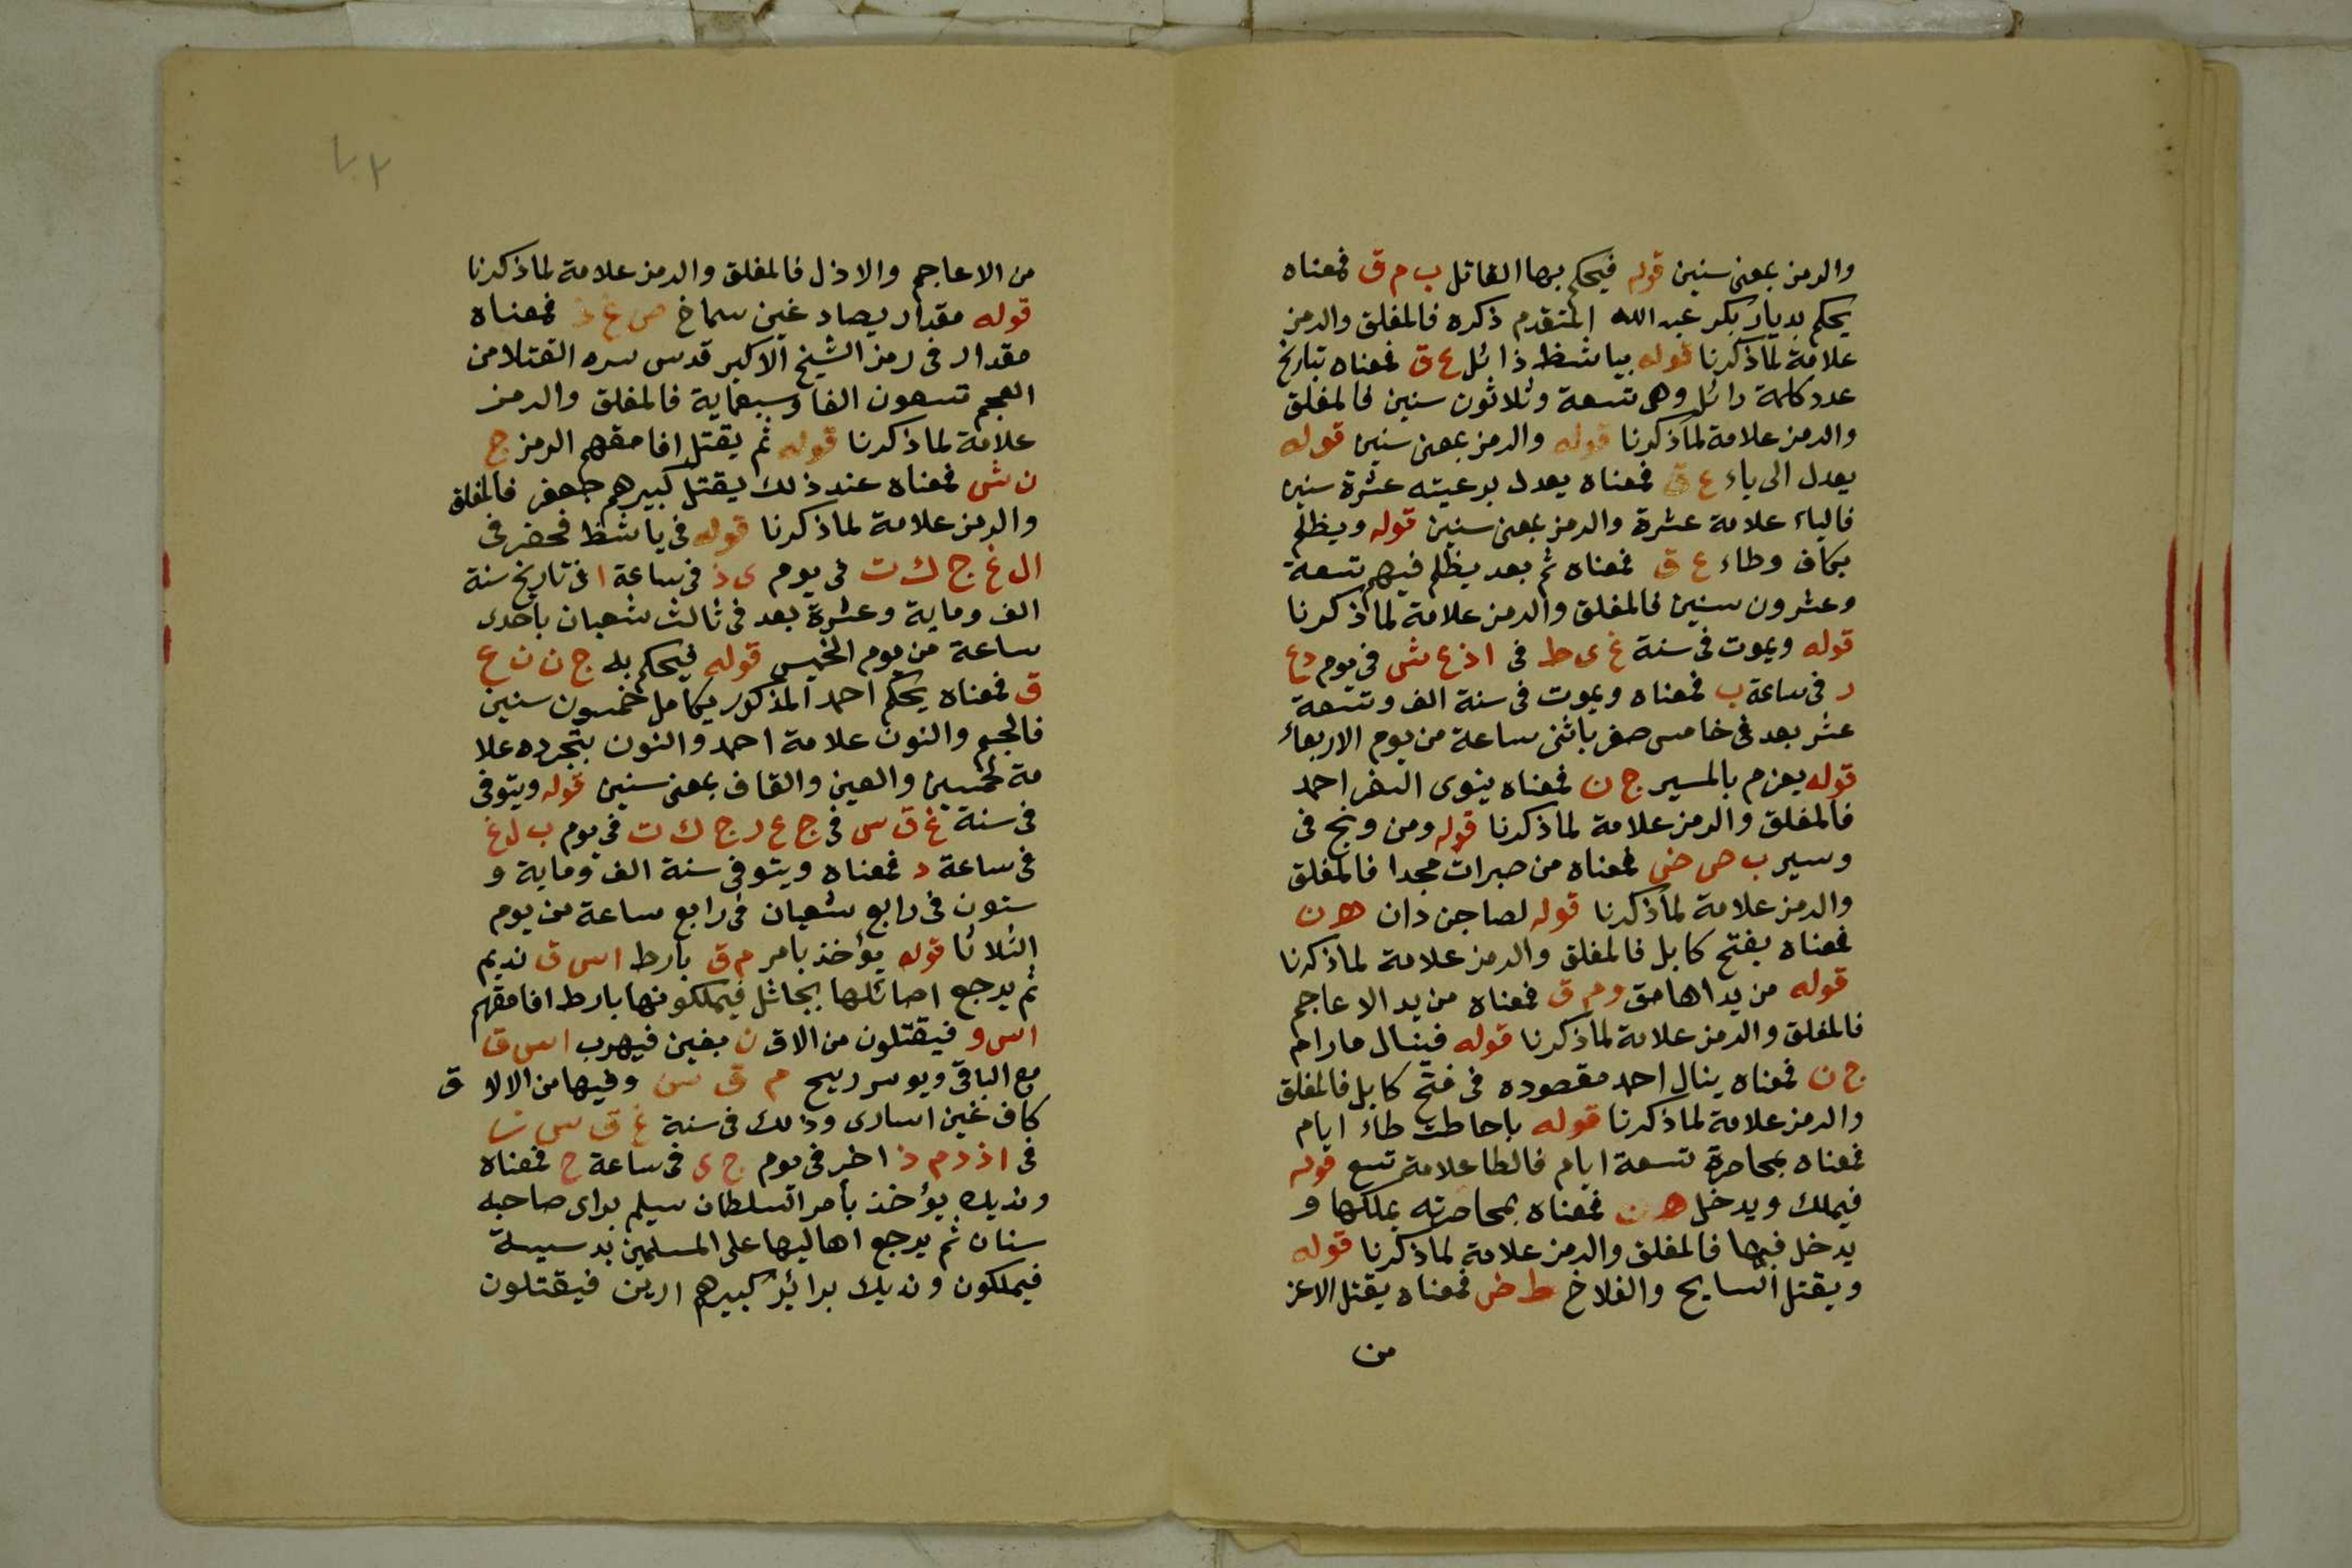 والرمز بمعنى سنين قوله فيحكم بها القاتل ب م ق فمعناه
يحكم بديار بكر عبد الله المتقدم ذكره فالمغلق والرمز
علامة لما ذكرنا قوله بياشظ ذائل ع ق فمعناه بتاريخ
عدد كلمة دائل وهى تسعة وثلاثون سنين فالمغلق
والرمز علامة لما ذكرنا قوله والرمز بمعنى سنين قوله
يعدل الى ياء ع ق فمعناه يعدل برعيته عشرة سنين
فالياء علامة عشرة والرمز بمعنى سنين قوله ويظلم
بكاف وطاء ع ق فمعناه ثم بعد يظلم فيهم تسعة
وعشرون سنين فالمغلق والرمز علامة لما ذكرنا
قوله ويموت فى سنة غ ى ط فى ا ذ ع ش فى يوم د ع
ر فى ساعة ب فمعناه ويموت فى سنة الف وتسعة
عشر بعد فى خامس صفر باثنى ساعة من يوم الاربعاء
قوله يعزم بالمسير ج ن فمعناه ينوى السفر احمد
فالمغلق والرمز علامة لما ذكرنا قوله ومن ونج فى
وسير ب ص ض فمعناه من صبرات مجدا فالمغلق
والرمز علامة لما ذكرنا قوله لصاجن دان ه ن
فمعناه بفتح كابل فالمغلق والرمز علامة لما ذكرنا
قوله من يد اهامق و م ق فمعناه من يد الاعاجم
فالمغلق والرمز علامة لما ذكرنا قوله فينال مارام
ج ن فمعناه ينال احمد مقصوده فى فتح كابل فالمغلق
والرمز علامة لما ذكرنا قوله باحاطت طاء ايام
فمعناه بمحاصرة تسعة ايام فالطا علامة تسع قوله
فيملك ويدخل ه ن فمعناه بمحاصرته يملكها و
يدخل فيها فالمغلق والرمز علامة لما ذكرنا قوله
ويقتل السايح والفلاخ ط ض فمعناه يقتل الاعز
من
من الاعاجم والاذل فالمغلق والرمز علامة لما ذكرنا
قوله مقدار بصاد غين سماخ ص غ ذ فمعناه
مقدار فى رمز الشيخ الاكبر قدس سره القتلا من
العجم تسعون الفا وسبعماية فالمغلق والرمز
علامة لما ذكرنا قوله ثم يقتل افامقهم الرمز ج
ن ش فمعناه عند ذلك يقتل كبيرهم جعفر فالمغلق
والرمز علامة لما ذكرنا قوله فى ياشظ فحفر فى
ال غ ج ك ت فى يوم ى ذ فى ساعة ا فى تاريخ سنة
الف وماية وعشرة بعد فى ثالث شعبان باحدى
ساعة من يوم الخميس قوله فيحكم بله ج ن ن ع
ق فمعناه يحكم احمد المذكور بكامل خمسون سنين
فالجيم والنون علامة احمد والنون بتجرده علا
مة خمسين والعين والقاف بمعنى سنين قوله ويتوفى
فى سنة غ ق س فى ج ع ر ج ك ت فى يوم ب ل غ
فى ساعة د فمعناه ويتوفى سنة الف وماية و
ستون فى رابع شعبان فى رابع ساعة من يوم
الثلاثا قوله يؤخذ بامر م ق بارط اس ق نديم
ثم يرجع اصائلها بجاثل فيملكونها بارط افامقهم
اس و فيقتلون من الاق ن بغين فيهرب اس ق
مع الباقى ويوسر ريح م ق س وفيها من الالا ق
كاف غين اسارى وذلك فى سنة غ ق س ث
فى ا ذ د م ذ اخر فى يوم ج ى فى ساعة ح فمعناه
ونديك يؤخذ بأمر السلطان سيلم براى صاحبه
سنان ثم يرجع اهاليها على المسلمين بدسيسة
فيملكون ونديك برائيز كبيرهم ارين فيقتلون